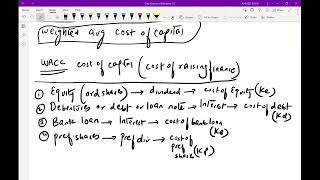 weighted avg cost of capital
WACC cost of capital (cost of raising finance)
① Equity (ord shares) → dividend → cost of Equity (Ke)
② Debentures or debt or loan note → Interest → cost of debt (Kd)
③ Bank loan → Interest → cost of bank loan (Kd)
④ pref. shares → pref div → cost of pref share (Kp)